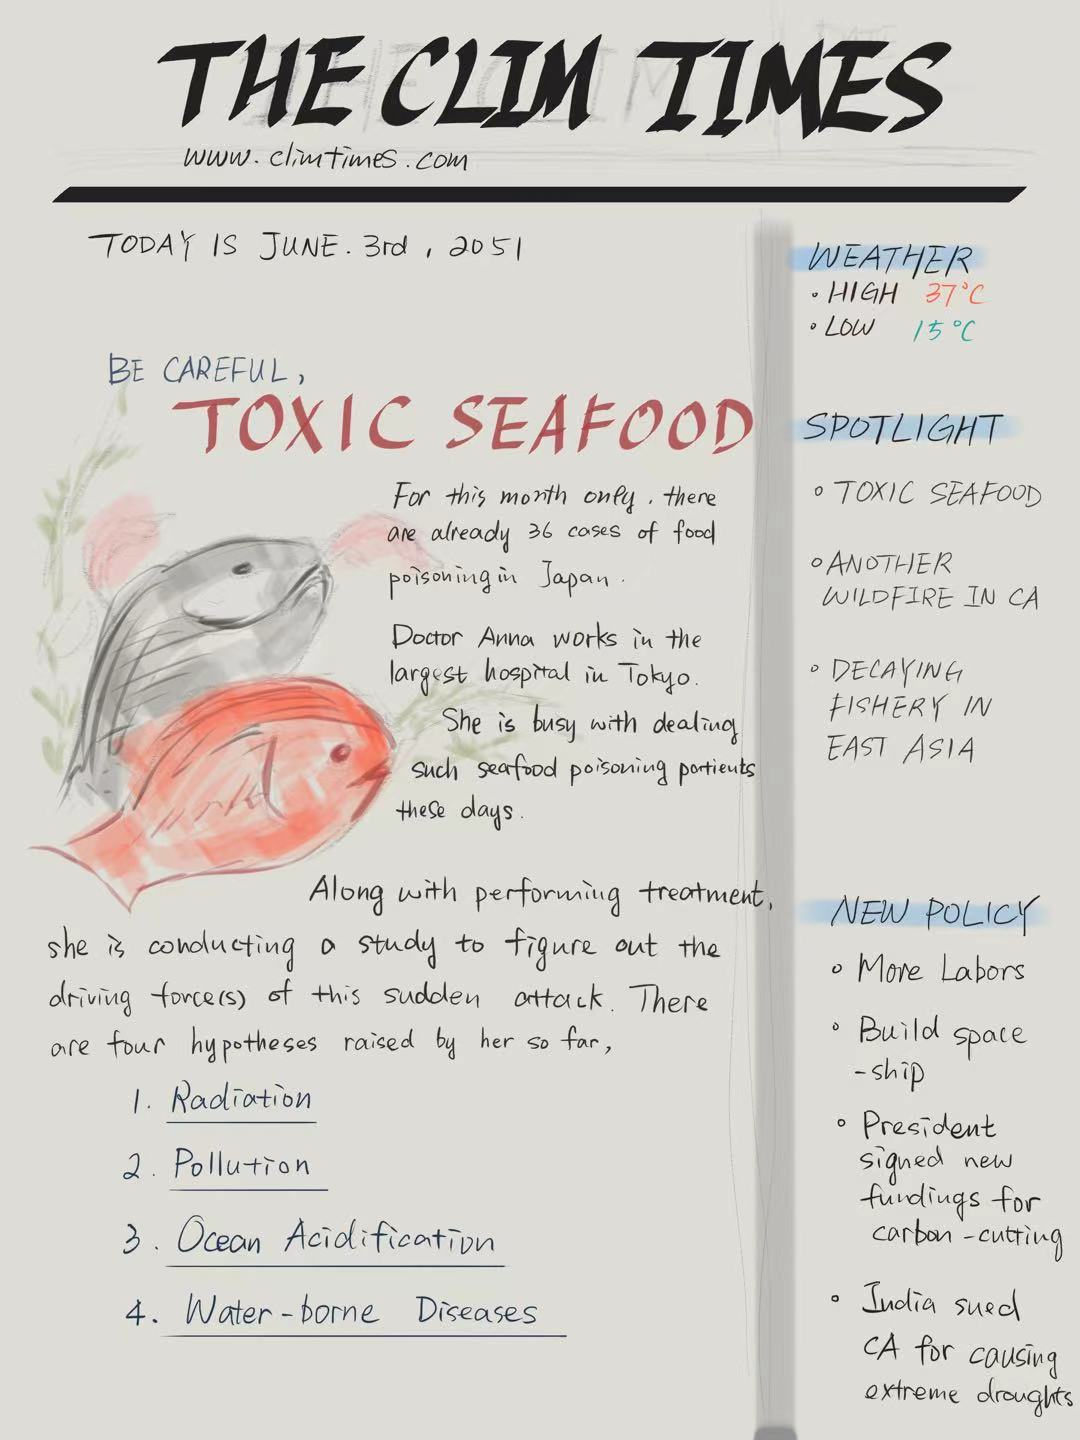 THE CLIM TIMES
www.climtimes.com
TODAY IS JUNE. 3rd, 2051
BE CAREFUL,
TOXIC SEAFOOD
For this month only, there
are already 36 cases of food
poisoning in Japan.
Doctor Anna works in the
largest hospital in Tokyo.
She is busy with dealing
such seafood poisoning partients
these days.
Along with performing treatment,
she is conducting a study to figure out the
driving force(s) of this sudden attack. There
are four hypotheses raised by her so far,
1. Radiation
2. Pollution
3. Ocean Acidification
4. Water-borne Diseases
WEATHER
• HIGH 37°C
• LOW 15°C
SPOTLIGHT
• TOXIC SEAFOOD
• ANOTHER
WILDFIRE IN CA
• DECAYING
FISHERY IN
EAST ASIA
NEW POLICY
• More Labors
• Build space
-ship
• President
signed new
fundings for
carbon-cutting
• India sued
CA for causing
extreme droughts